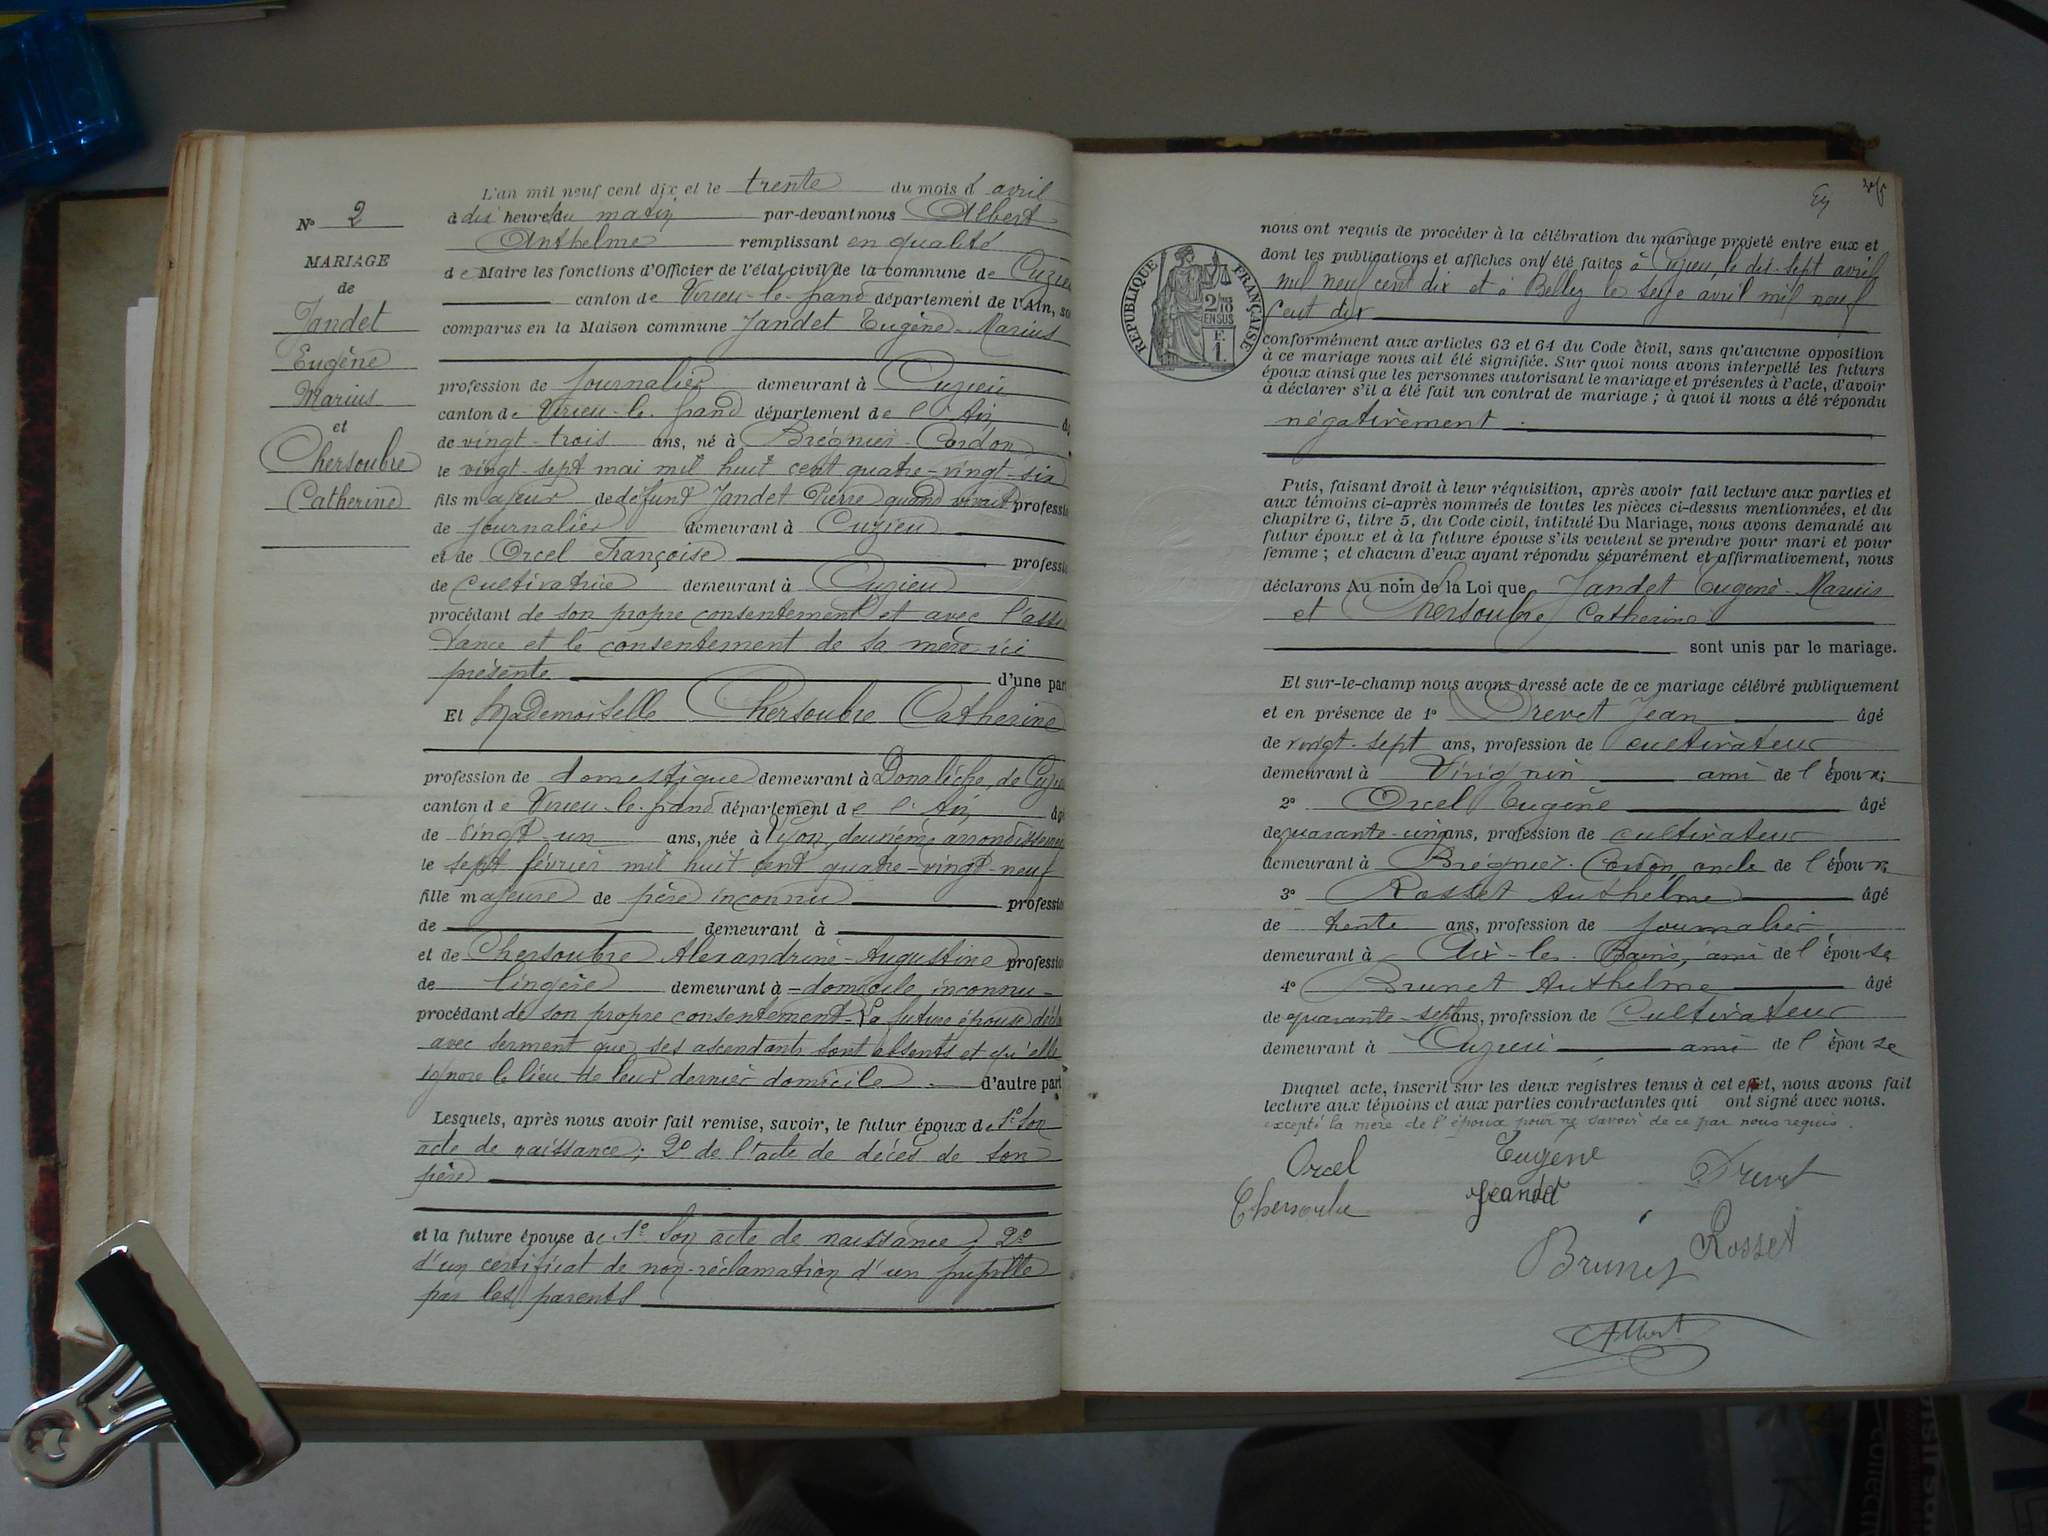 L'an mil neuf cent dix et le trente du mois d avril
N° 2
à dix heures du matin par-devant nous Albert
Anthelme remplissant en qualité
MARIAGE
de Maire les fonctions d'Officier de l'état civil de la commune de Cuzieu
de
canton de Virieu-le-Grand département de l'Ain, so
Jandet
comparus en la Maison commune Jandet Eugène-Marius
Eugène
profession de journalier demeurant à Cuzieu
Marius
canton de Virieu-le-Grand département de l'Ain
et
de vingt-trois ans, né à Brégnier-Cordon
Chersoubre
le vingt-sept mai mil huit cent quatre-vingt-six
Catherine
fils majeur de défunt Jandet Pierre quand vivait professio
de journalier demeurant à Cuzieu
et de Orcel Françoise professio
de cultivatrice demeurant à Cuzieu
procédant de son propre consentement et avec l'assis
tance et le consentement de sa mère ici
présente d'une part
Et Mademoiselle Chersoubre Catherine
profession de domestique demeurant à Donalèche, de Cuzieu
canton de Virieu-le-Grand département de l'Ain âgé
de vingt-un ans, née à Lyon, deuxième arrondissement
le sept février mil huit cent quatre-vingt-neuf
fille majeure de père inconnu professio
de demeurant à
et de Chersoubre Alexandrine-Augustine professio
de lingère demeurant à - domicile inconnu -
procédant de son propre consentement - La future épouse décla
avec serment que ses ascendants sont absents et qu'elle
ignore le lieu de leur dernier domicile. d'autre part
Lesquels, après nous avoir fait remise, savoir, le futur époux de 1° Son
acte de naissance; 2° de l'acte de décès de son
père
et la future épouse de 1° Son acte de naissance; 2°
d'un certificat de non-réclamation d'un pupille
par les parents
nous ont requis de procéder à la célébration du mariage projeté entre eux et
dont les publications et affiches ont été faites à Cuzieu, le dix-sept avril
mil neuf cent dix et à Belley le seize avril mil neuf
cent dix
REPUBLIQUE FRANÇAISE
2/10 EN SUS
F. 1.
conformément aux articles 63 et 64 du Code civil, sans qu'aucune opposition
à ce mariage nous ait été signifiée. Sur quoi nous avons interpellé les futurs
époux ainsi que les personnes autorisant le mariage et présentes à l'acte, d'avoir
à déclarer s'il a été fait un contrat de mariage; à quoi il nous a été répondu
négativement.
Puis, faisant droit à leur réquisition, après avoir fait lecture aux parties et
aux témoins ci-après nommés de toutes les pièces ci-dessus mentionnées, et du
chapitre 6, titre 5, du Code civil, intitulé Du Mariage, nous avons demandé au
futur époux et à la future épouse s'ils veulent se prendre pour mari et pour
femme; et chacun d'eux ayant répondu séparément et affirmativement, nous
déclarons Au nom de la Loi que Jandet Eugène-Marius
et Chersoubre Catherine
sont unis par le mariage.
Et sur-le-champ nous avons dressé acte de ce mariage célébré publiquement
et en présence de 1° Drevet Jean âgé
de vingt-sept ans, profession de cultivateur
demeurant à Virignin ami de l'époux;
2° Orcel Eugène âgé
de quarante-cinq ans, profession de cultivateur
demeurant à Brégnier-Cordon, oncle de l'époux
3° Rosset Anthelme âgé
de trente ans, profession de journalier
demeurant à Aix-les-Bains, ami de l'épouse
4° Brunet Anthelme âgé
de quarante-sept ans, profession de Cultivateur
demeurant à Cuzieu ami de l'épouse
Duquel acte, inscrit sur les deux registres tenus à cet effet, nous avons fait
lecture aux témoins et aux parties contractantes qui ont signé avec nous.
excepté la mère de l'époux pour ne savoir de ce par nous requis.
Orcel Eugène Drevet
Chersoubre Jeandet
Brunet Rosset
Albert